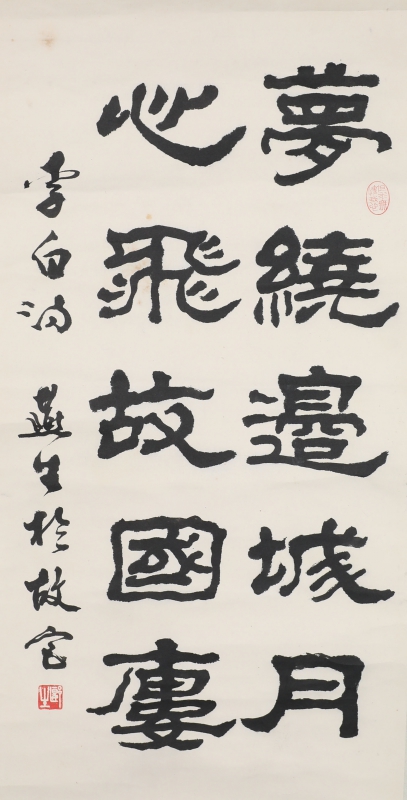 夢繞邊城月
心飛故國廔
李白詩 燕生於故宮